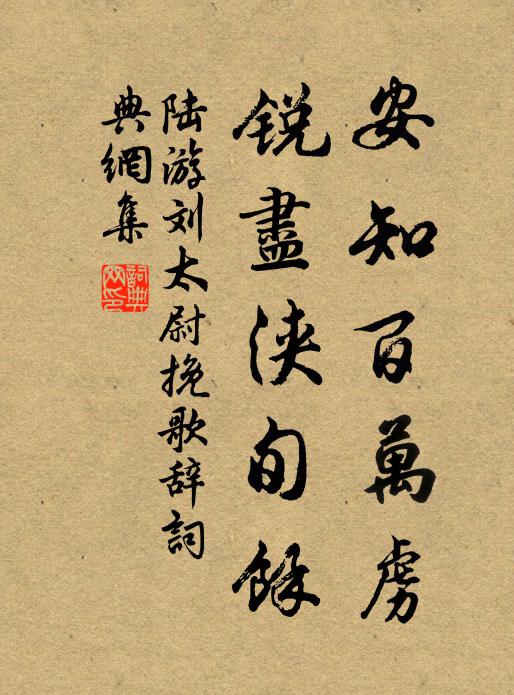 安知百萬虜
銳盡浹旬餘
陆游刘太尉挽歌辞詞
典網集
詞典网印